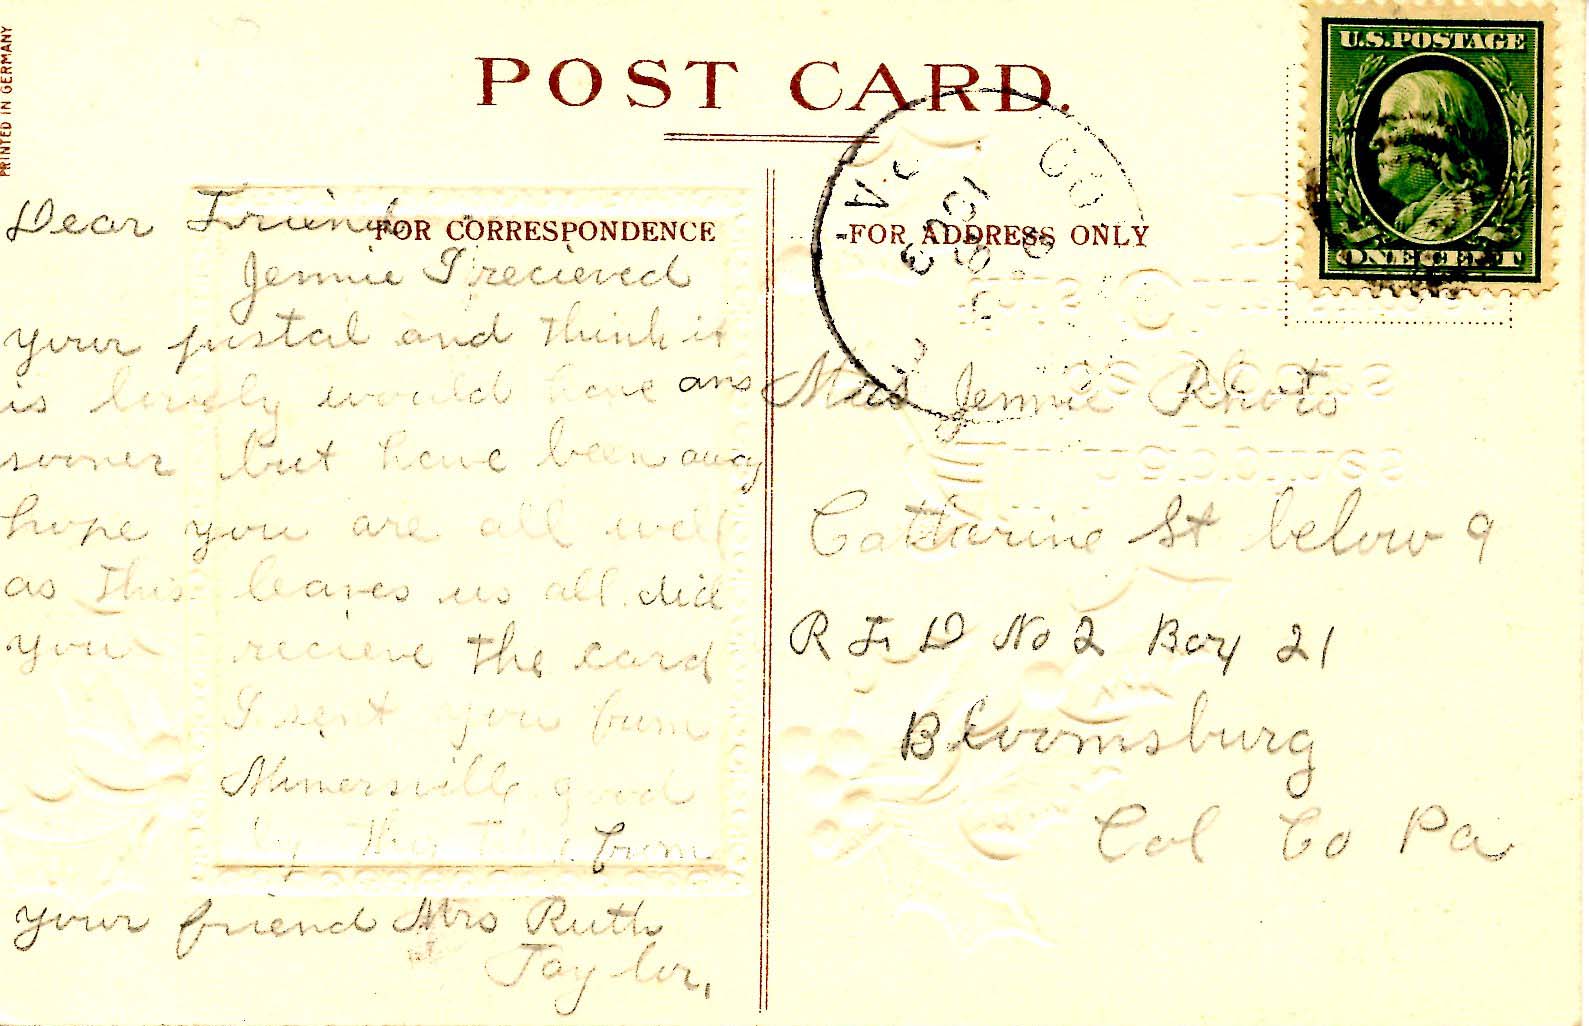 PRINTED IN GERMANY
POST CARD.
U.S. POSTAGE
ONE CENT
FOR CORRESPONDENCE
Dear Friend
Jennie I recieved
your postal and think it
is lovely would have ans
sooner but have been away
hope you are all well
as this leaves us all. did
you recieve the card
I sent you from
Minersville good
by this time from
your friend Mrs Ruth
Taylor,
FOR ADDRESS ONLY
Jennie Rhots
Catharine St below 9
R F D No 2 Box 21
Bloomsburg
Col Co Pa